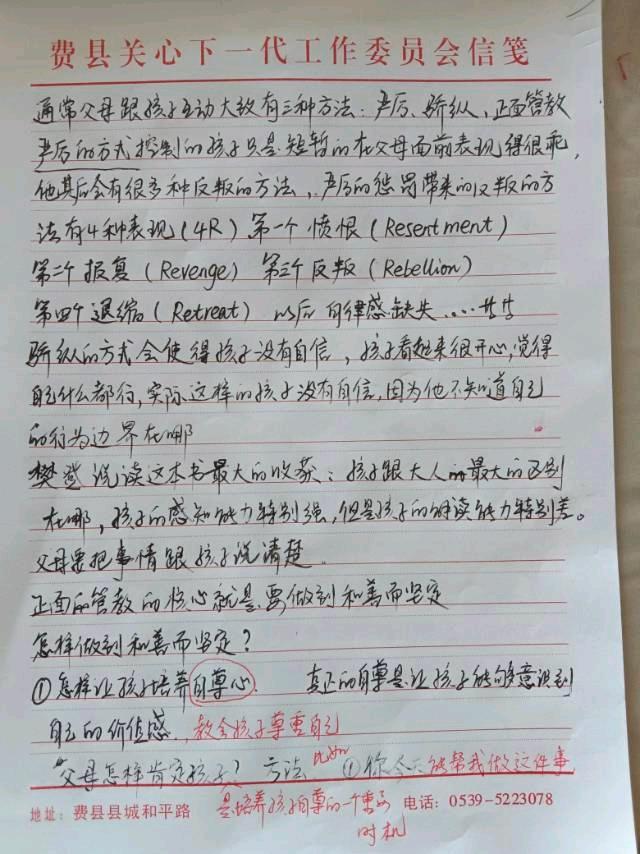 费县关心下一代工作委员会信笺
通常父母跟孩子互动大致有三种方法：严厉、骄纵、正面管教
严厉的方式控制的孩子只是短暂的在父母面前表现得很乖，
他其后会有很多种反叛的方法，严厉的惩罚带来的反叛的方
法有4种表现（4R）第一个 愤恨（Resentment）
第二个 报复（Revenge） 第三个 反叛（Rebellion）
第四个 退缩（Retreat） 以后 自律感缺失……
骄纵的方式会使得孩子没有自信，孩子看起来很开心，觉得
自己什么都行，实际这样的孩子没有自信，因为他不知道自己
的行为边界在哪
樊登说读这本书最大的收获：孩子跟大人的最大的区别
在哪，孩子的感知能力特别强，但是孩子的解读能力特别差。
父母要把事情跟孩子说清楚
正面的管教的核心就是要做到和善而坚定
怎样做到和善而坚定？
①怎样让孩子培养自尊心 真正的自尊是让孩子能够意识到
自己的价值感，教会孩子尊重自己
父母怎样肯定孩子？方法 比如 ①你今天能帮我做这件事
是培养孩子自尊的一个重要
时机
地址：费县县城和平路 电话：0539-5223078